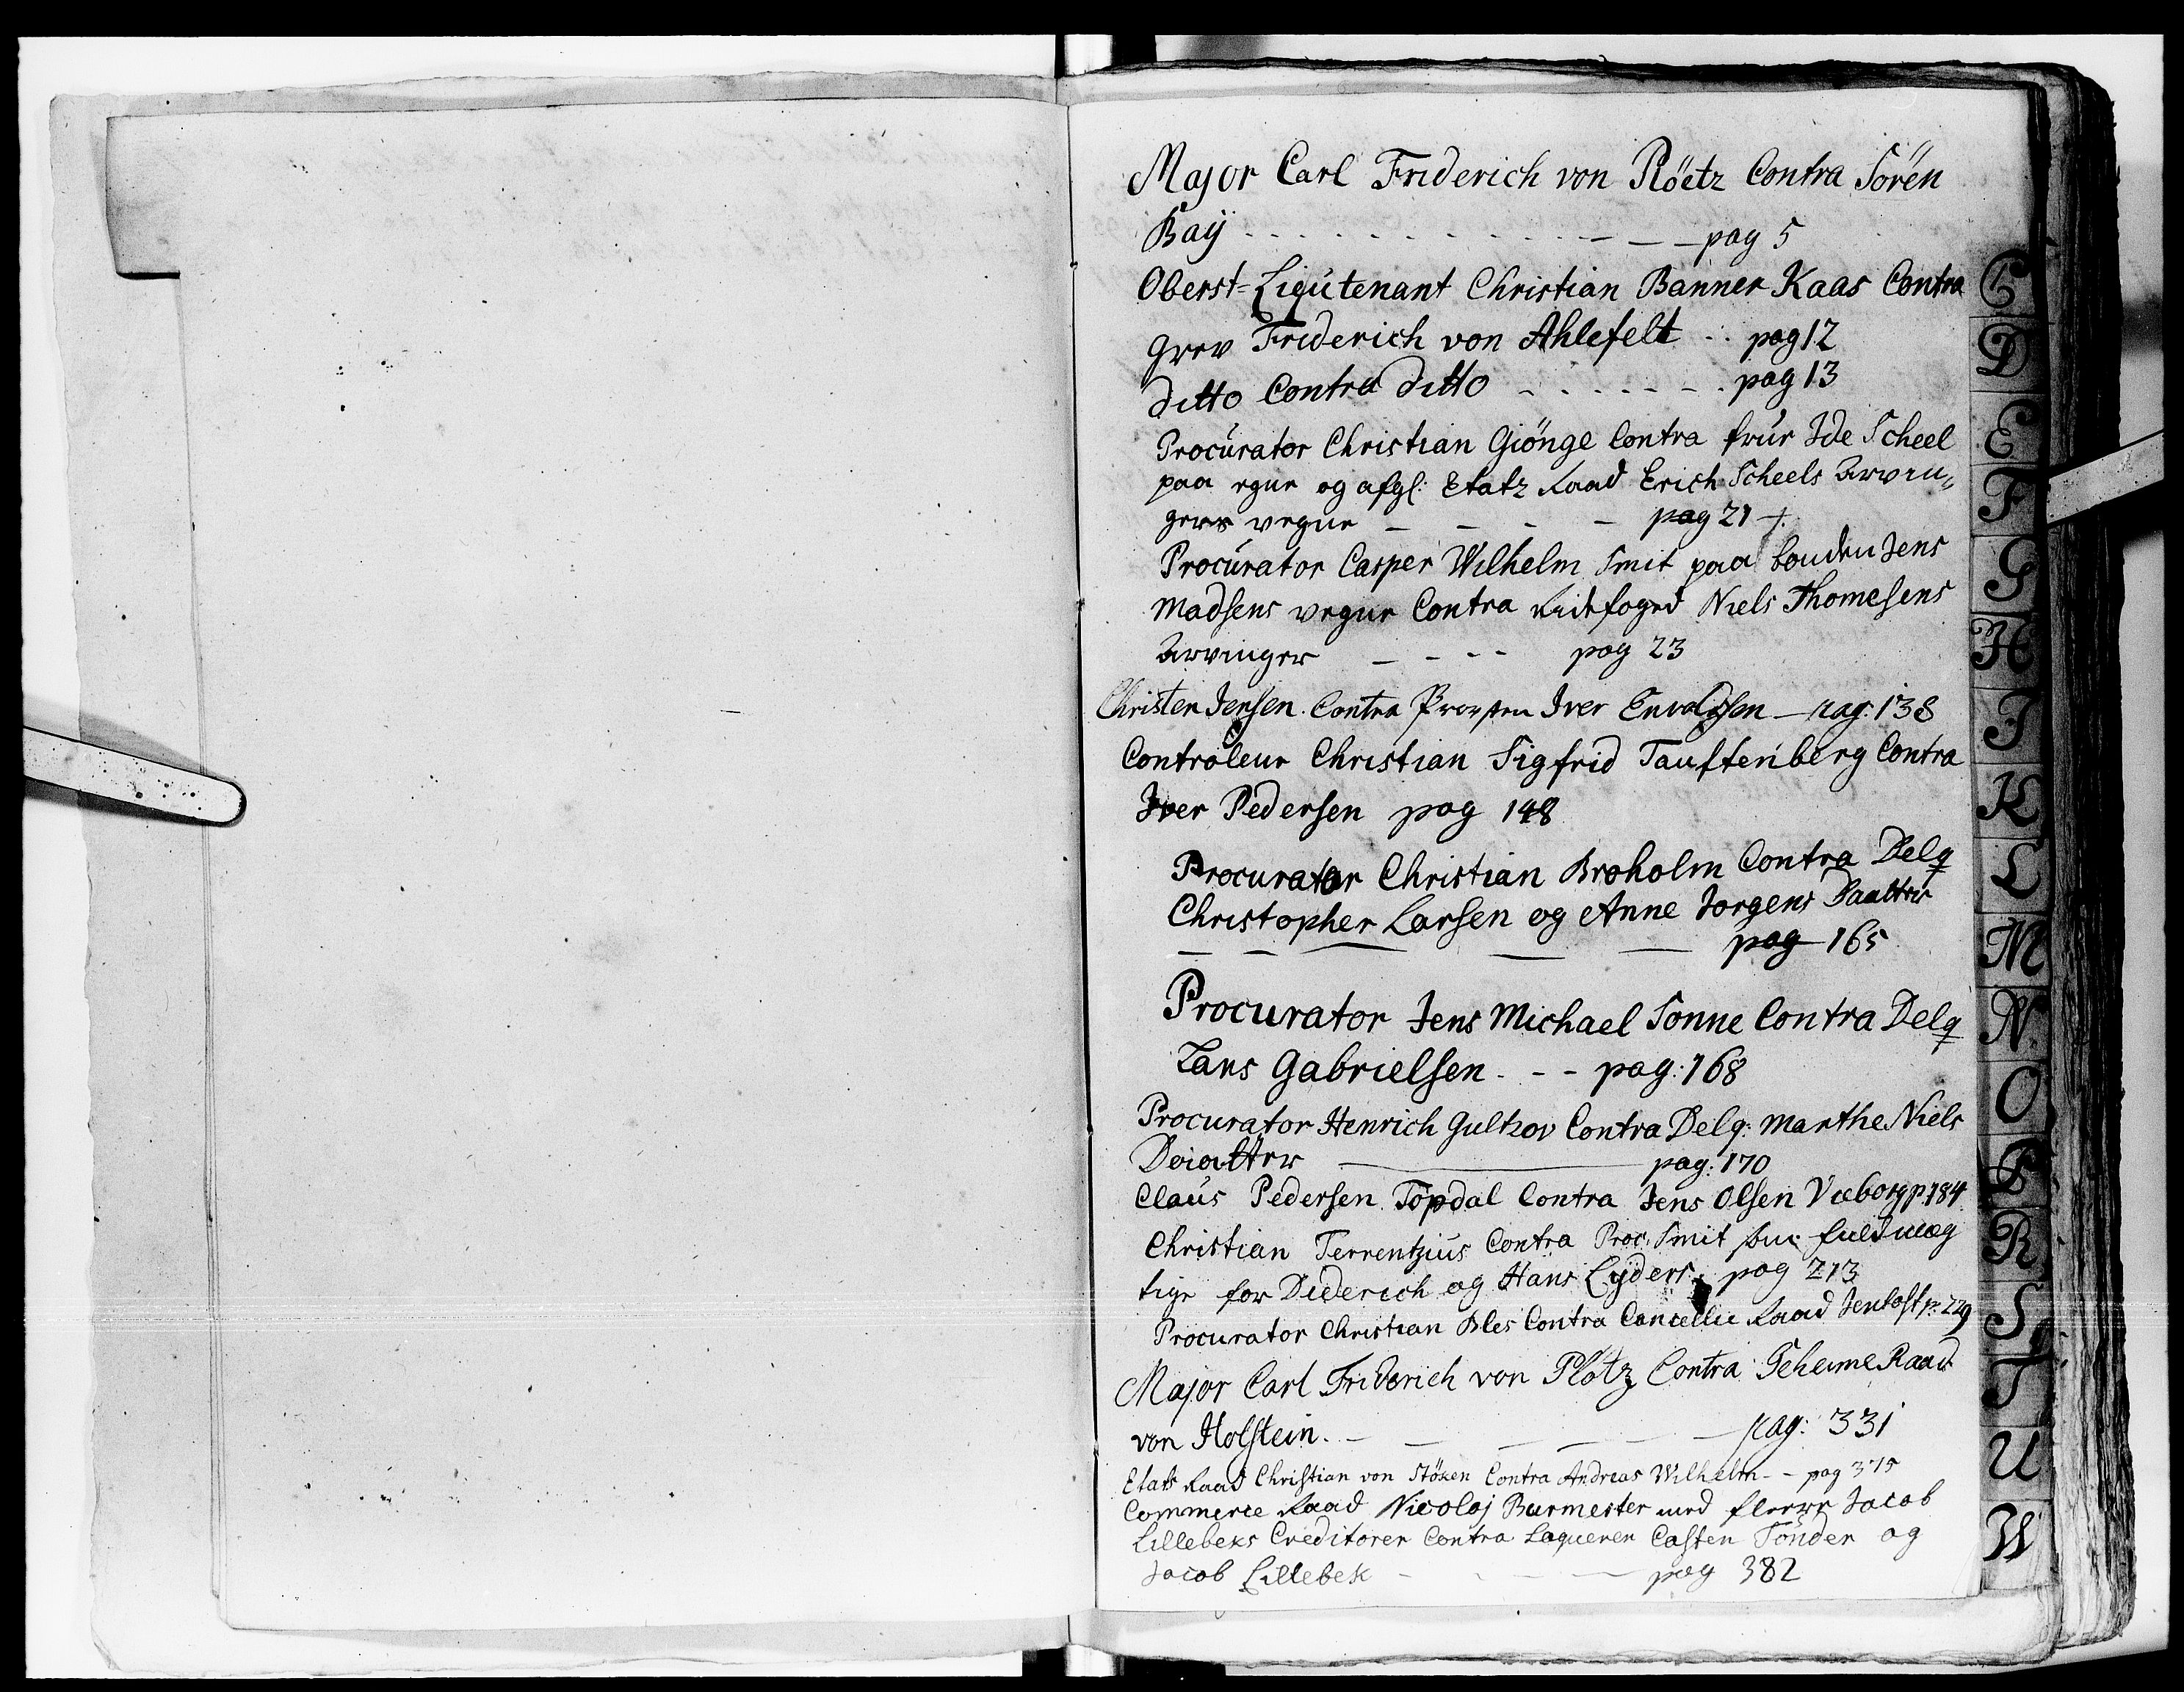 Major Carl Friderich von Plöetz Contra Sören
Baÿ - - - - - - - - - - pag 5
Oberst=Lieutenant Christian Banner Kaas Contra
grev Friderich von Ahlefelt - - pag 12
ditto Contra ditto - - - - - - pag 13
Procurator Christian Giönge Contra frue Ide Scheel
paa egne og afgl: Etatz Raad Erich Scheels Arvin„
gers vegne - - - - pag 21
Procurator Casper Wilhelm Smit paa bonden Jens
Madsens vegne Contra Ridefoged Niels Thomesens
Arvinger - - - - pag 23
Christen Jensen Contra Provsten Iver Envoldsen - pag: 138
Controleur Christian Sigfrid Tauftenberg Contra
Iver Pedersen pag 148
Procurator Christian Broholm Contra Delq
Christopher Larsen og Anne Jørgens Daatter
- - - - - pag 165
Procurator Jens Michael Sonne Contra Delq
Lars Gabrielsen - - - pag: 168
Procurator Henrich Gultzov Contra Delq: Marthe Niels
Daatter - pag: 170
Claus Pedersen Topdal Contra Jens Olsen Viborg p 184
Christian Terrentzius Contra Proc. Smit som fuldmæg
tige for Diderich og Hans Lÿders. pag 213
Procurator Christian Bles Contra Cancellie Raad Jentoft p: 229
Major Carl Friderich von Plötz Contra Geheime Raad
von Holstein. - - - - - pag: 331
Etats Raad Christian von Stöken Contra Andreas Wilhelm - - pag 375
Commerce Raad Nicolaj Burmester med fleere Jacob
Lillebeks Creditorer Contra Laqueren Casten Tönder og
Jacob Lillebek - - - - pag 382
C
D
E
F
G
H
I
K
L
M
N.
O
P
R
S
T
U
W